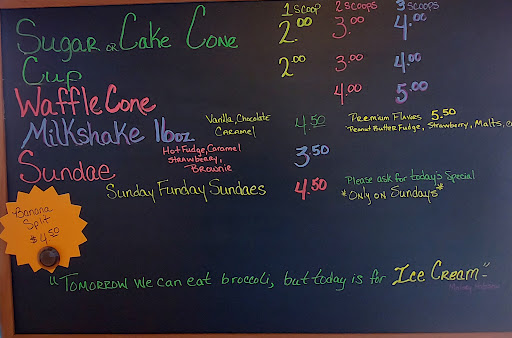 1 Scoop 2 Scoops 3 Scoops
Sugar or Cake Cone 2.00 3.00 4.00
Cup 2.00 3.00 4.00
Waffle Cone 4.00 5.00
Milkshake 16oz Vanilla, Chocolate 4.50 Premium Flaves 5.50
Caramel Peanut Butter Fudge, Strawberry, Malts,
Sundae Hot Fudge, Caramel 3.50
Strawberry,
Brownie
Sunday Funday Sundaes 4.50 Please ask for today's Special
*Only on Sundays*
Banana
Split
$4.50
"Tomorrow we can eat broccoli, but today is for Ice Cream"